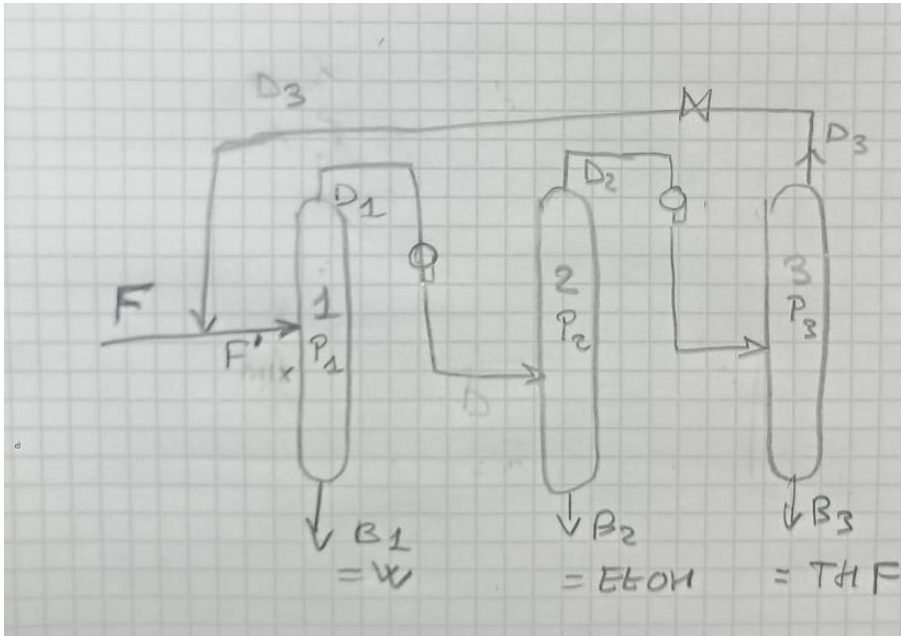 D3
D3
D1
D2
F
1
P1
2
P2
3
P3
F'
D
B1
= W
B2
= EtOH
B3
= THF